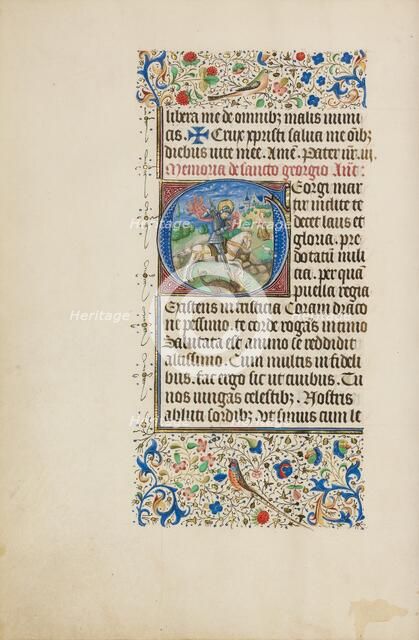 libera me de omnibꝫ malis inimi
cis. ✠ Crux xpristi salua me oībꝫ
diebus uite mee. Amē. Pater nr̄. iii.
Memoria de sancto georgio Anē:
Georgi mar
tir inclite te
decet laus et
gloria. pre
dotatū mili
cia. per quā
puella regia
Existens in tristicia Coram draco
ne pessimo. te corde rogās intimo
Saluata est animo se reddidit
altissimo. Cum multis infideli
bus. fac ergo sic ut ciuibus. Tu
nos iungas celestibꝫ. Nostris
abluti sordibꝫ. Vt simus cum le
Heritage
Images
Heritage
Images